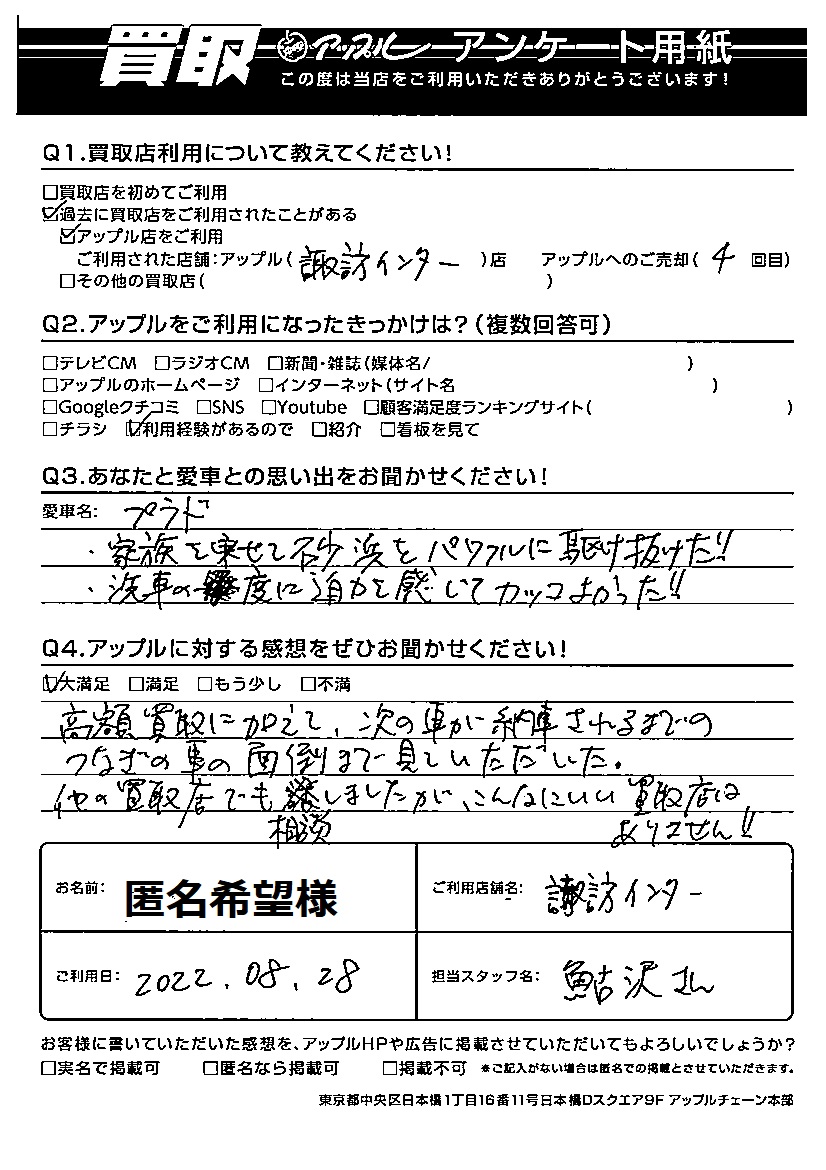 買取 アップル アンケート用紙
この度は当店をご利用いただきありがとうございます!
Q1.買取店利用について教えてください!
□買取店を初めてご利用
☑過去に買取店をご利用されたことがある
☑アップル店をご利用
ご利用された店舗:アップル( 諏訪インター )店 アップルへのご売却( 4 回目)
□その他の買取店( )
Q2.アップルをご利用になったきっかけは?(複数回答可)
□テレビCM □ラジオCM □新聞・雑誌(媒体名/ )
□アップルのホームページ □インターネット(サイト名 )
□Googleクチコミ □SNS □Youtube □顧客満足度ランキングサイト( )
□チラシ ☑利用経験があるので □紹介 □看板を見て
Q3.あなたと愛車との思い出をお聞かせください!
愛車名: プラド
・家族を乗せて砂浜をパワフルに駆け抜けた!!
・洗車の度に迫力を感じてカッコよかった!!
Q4.アップルに対する感想をぜひお聞かせください!
☑大満足 □満足 □もう少し □不満
高額買取に加えて、次の車が納車されるまでの
つなぎの車の面倒まで見ていただいた。
他の買取店でも相談しましたが、こんなにいい買取店は
ありません!!
お名前: 匿名希望様
ご利用店舗名: 諏訪インター
ご利用日: 2022.08.28
担当スタッフ名: 鮎沢さん
お客様に書いていただいた感想を、アップルHPや広告に掲載させていただいてもよろしいでしょうか?
□実名で掲載可 □匿名なら掲載可 □掲載不可 ※ご記入がない場合は匿名での掲載とさせていただきます。
東京都中央区日本橋1丁目16番11号日本橋Dスクエア9F アップルチェーン本部